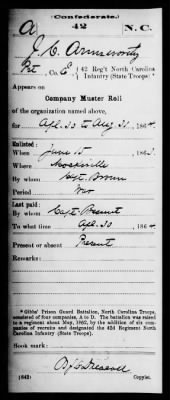 (Confederate.)
A 42 N.C.
J. C. Armsworthy
Pvt, Co. E, 42 Reg't North Carolina
Infantry (State Troops).*
Appears on
Company Muster Roll
of the organization named above,
for Apl. 30 to Aug 31, 1864.
Enlisted:
When June 15, 186
Where Mocksville
By whom Capt. Brown
Period War
Last paid:
By whom Capt. Besent
To what time Apl. 30, 1864
Present or absent Present
Remarks:
*Gibbs' Prison Guard Battalion, North Carolina Troops,
consisted of four companies, A to D. The battalion was raised
to a regiment about May, 1862, by the addition of six com-
panies of recruits and designated the 42d Regiment North
Carolina Infantry (State Troops).
Book mark:
(642) Copyist.